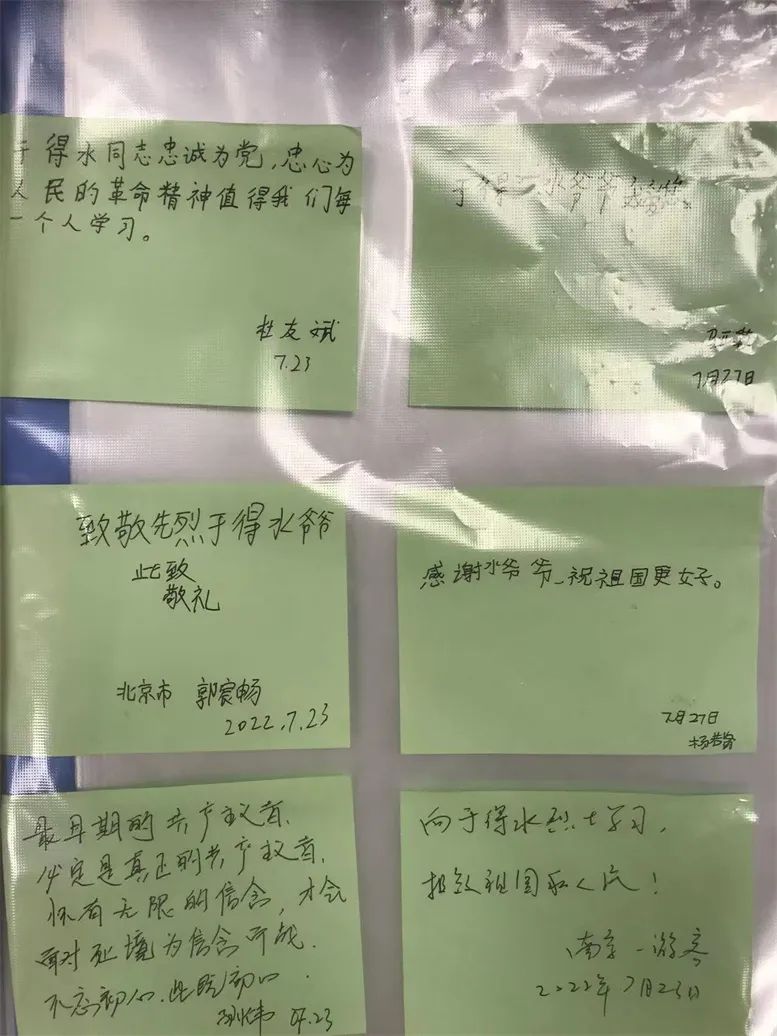 于得水同志忠诚为党,忠心为
人民的革命精神值得我们每
一个人学习。
杜友斌
7.23
于得水爷爷
7月27日
致敬先烈于得水爷爷
此致
敬礼
北京市 郭宸畅
2022.7.23
感谢水爷爷、祝祖国更好。
7月27日
最早期的共产主义者、
必定是真正的共产主义者、
怀有无限的信念,才会
面对死境为信念而战.
不忘初心.
07.23
向于得水烈士学习,
报效祖国和人民!
南京一游客
2022年7月23日